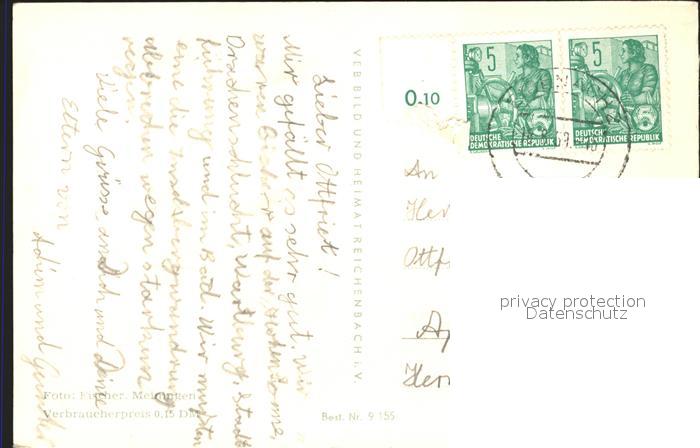 Lieber Ottfried!
Mir gefällt es sehr gut, wir
waren bisher auf der hohen Sonne,
Drachenschlucht, Wartburg, Stadt-
führung und im Bad. Wir mussten
eine die Inselsbergwanderung
abbrechen wegen starkem
regen!
Viele Grüsse an Dich und Deine
Eltern von
und Günther
VEB BILD UND HEIMAT REICHENBACH i. V.
Foto: Fischer, Meiningen
Verbraucherpreis 0,15 DM
Best. Nr. 9 155
0.10
5
DEUTSCHE
DEMOKRATISCHE REPUBLIK
5
DEUTSCHE
DEMOKRATISCHE REPUBLIK
An
Her
Ottf
Her
privacy protection
Datenschutz